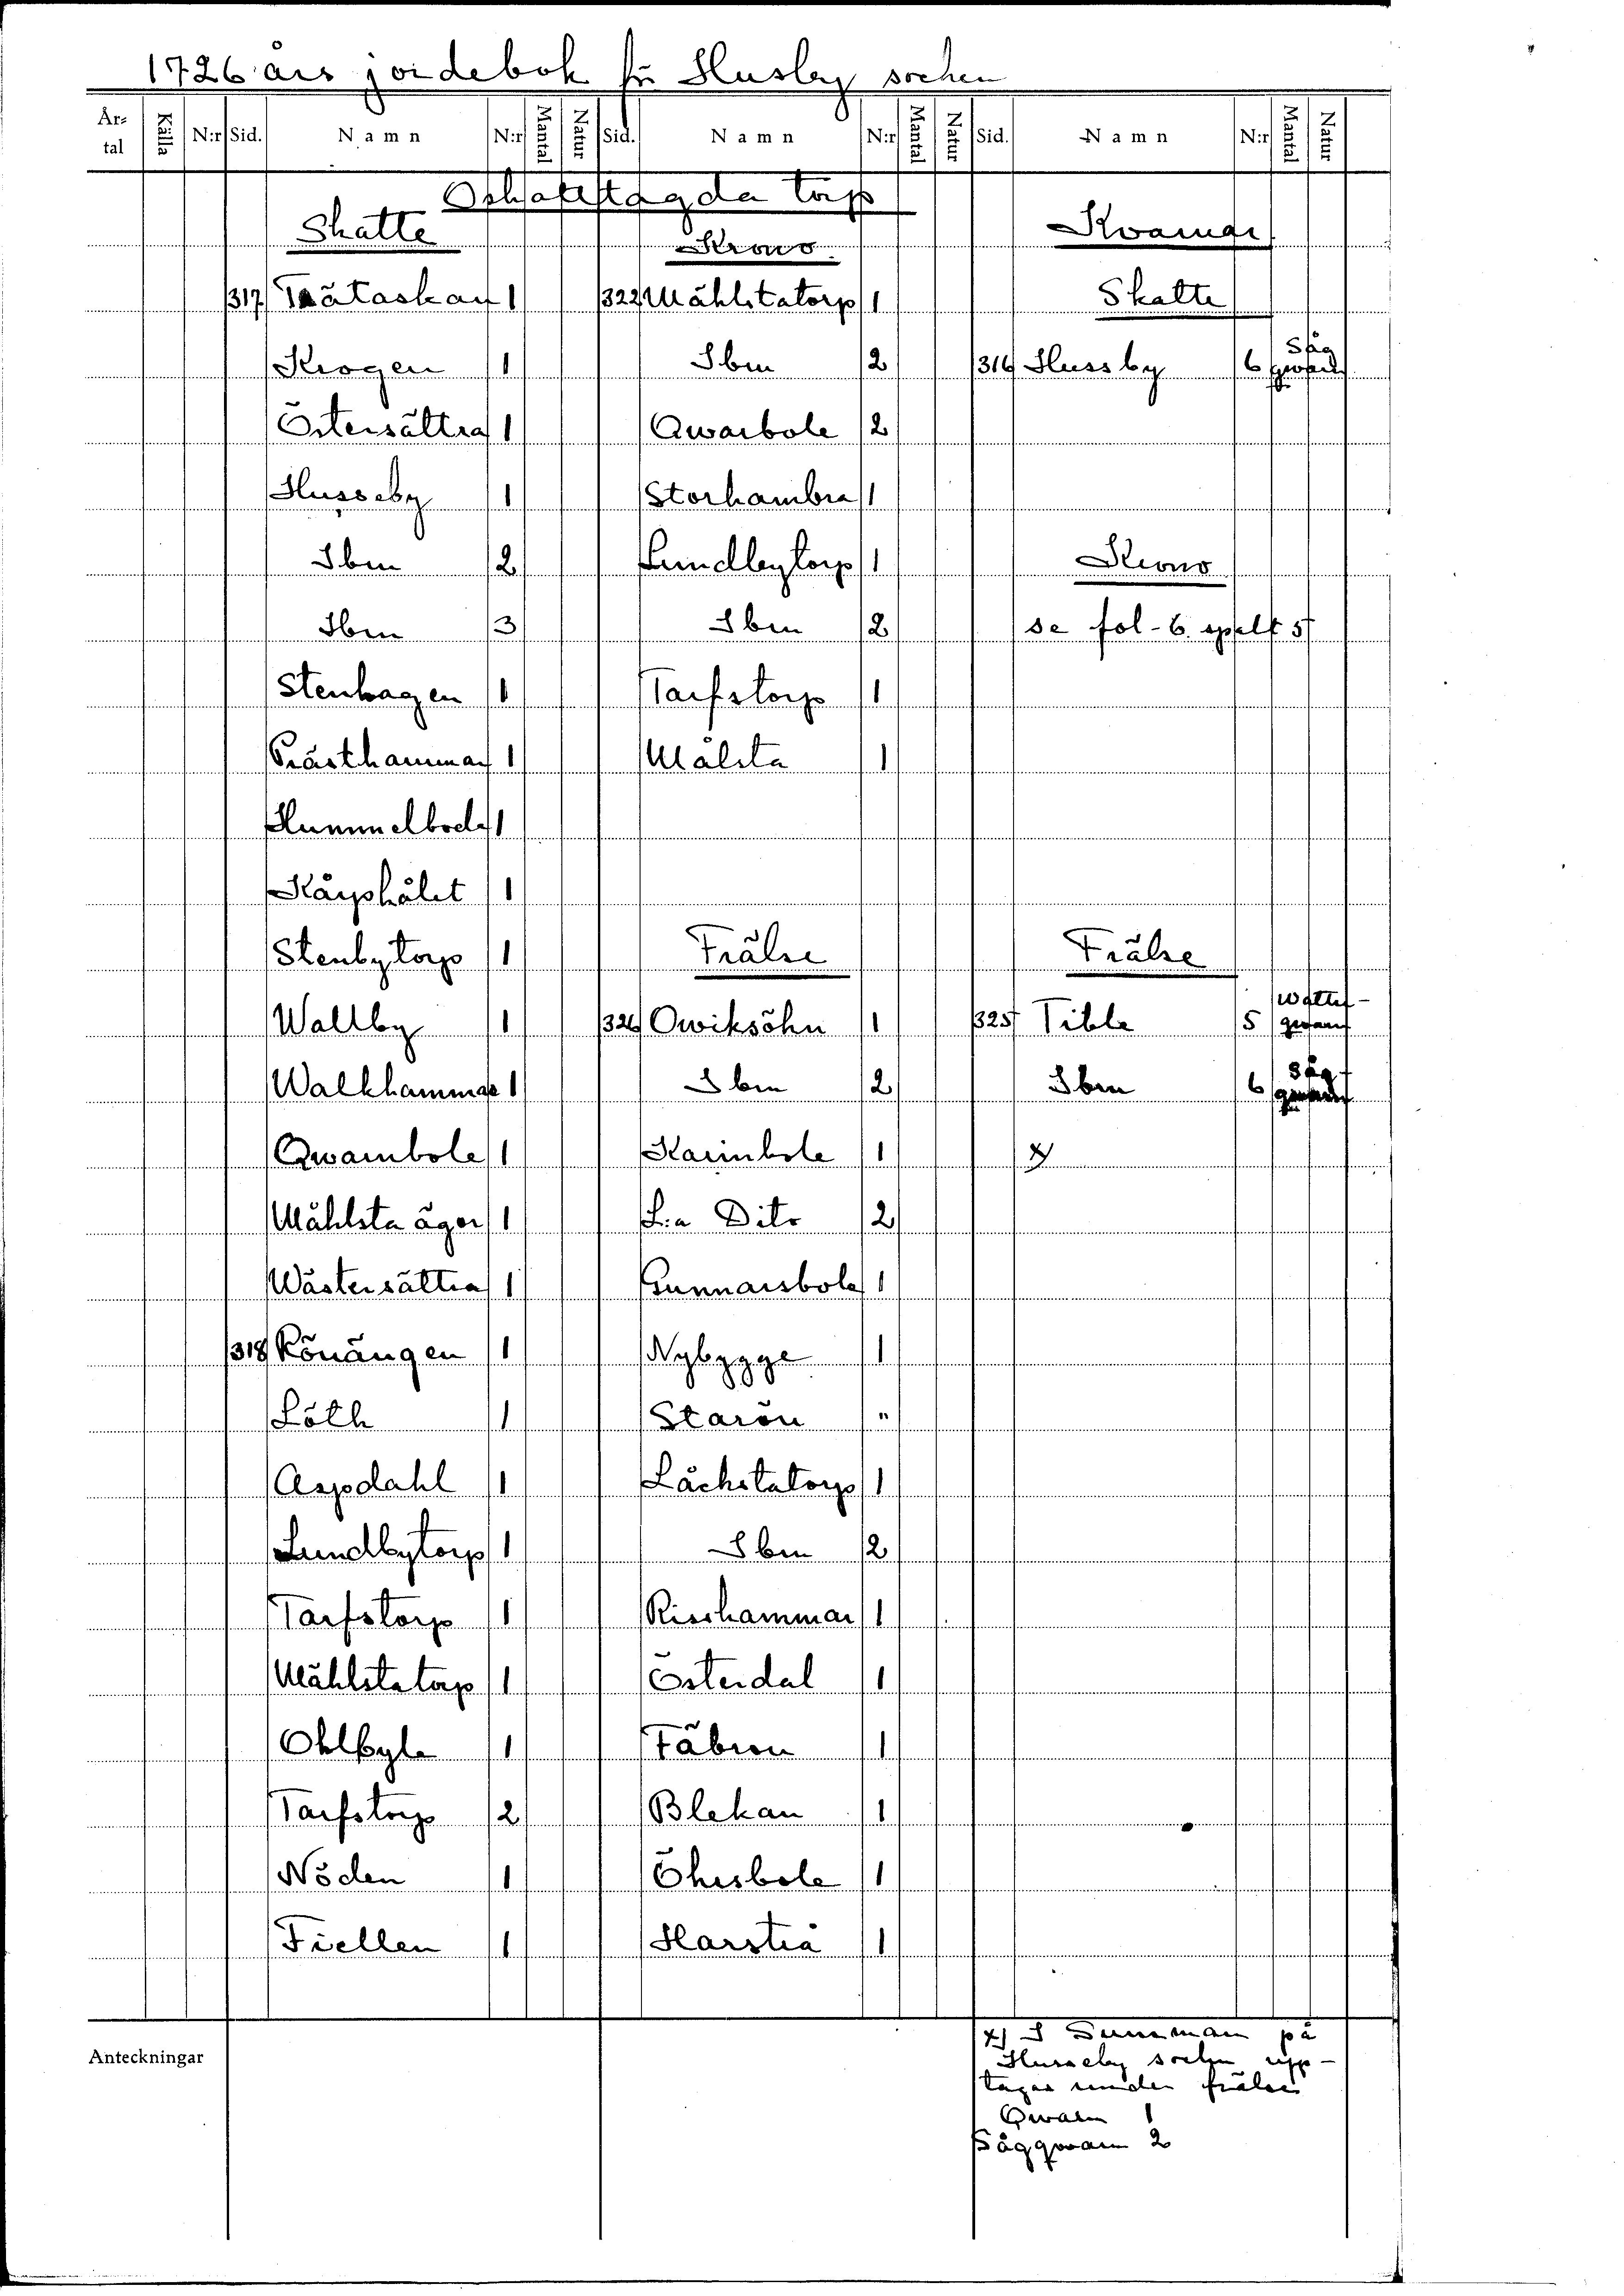 1726 års jordebok för Husby socken
År-tal Källa N:r Sid. Namn N:r Mantal Natur Sid. Namn N:r Mantal Natur Sid. Namn N:r Mantal Natur
Oskattlagda torp
Skatte Krono Kvarnar
317 Trätaskan 1 322 Mählstatorp 1 Skatte
Krogen 1 Ibm 2 316 Hussby 6 Såg qwarn
Östersättra 1 Qwarbole 2
Husseby 1 Storhambra 1
Ibm 2 Lundbytorp 1 Krono
Ibm 3 Ibm 2 se fol. 6 spalt 5
Stenhagen 1 Tarfstorp 1
Prästhammar 1 Målsta 1
Hummelbode 1
Kårphålet 1
Stenbytorp 1 Frälse Frälse
Wallby 1 326 Owiksöhn 1 325 Tible 5 Watter-qwarn
Walkhammar 1 Ibm 2 Ibm 6 Såg-qwarn
Qwarnbole 1 Karinbole 1 x)
Måhlsta ägor 1 L:a Dito 2
Wästersättra 1 Gunnarsbole 1
318 Rönängen 1 Nybygge 1
Löth 1 Starön "
Aspdahl 1 Låckstatorp 1
Lundbytorp 1 Ibm 2
Tarfstorp 1 Risshammar 1
Mählstatorp 1 Österdal 1
Ohlbyle 1 Fäbron 1
Tarfstorp 2 Blekan 1
Nöden 1 Öhrsbole 1
Fiellen 1 Harstrå 1
Anteckningar
x) I Summan på
Husseby socken upp-
tagas under frälse
Qwarn 1
Sågqwarn 2